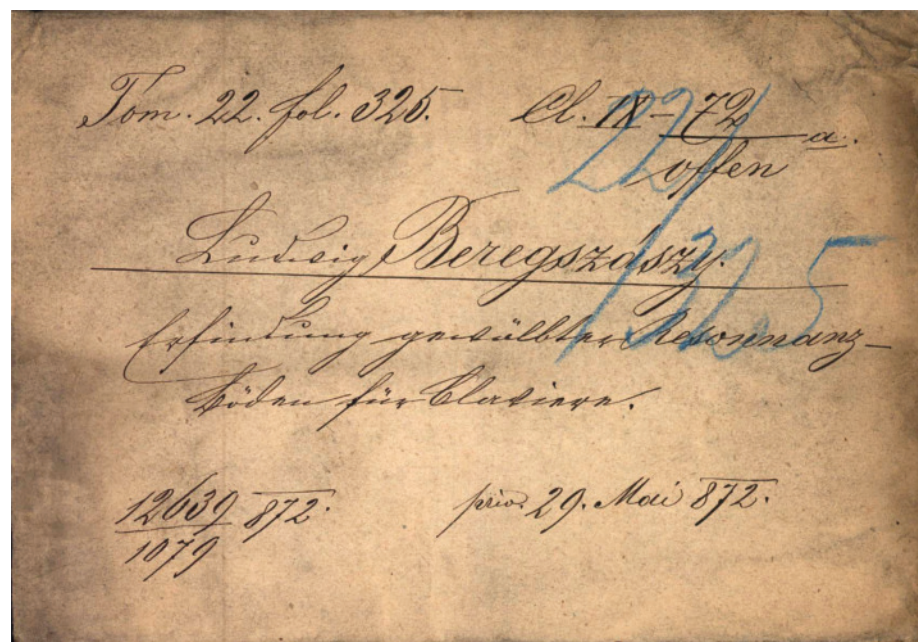 Tom. 22. fol. 325. Cl. IX – 72 a.
offen
221/
1325
Ludwig Beregszászy.
Erfindung gewölbter Resonnanz-
böden für Claviere.
12639 872. prior. 29. Mai 872.
1079